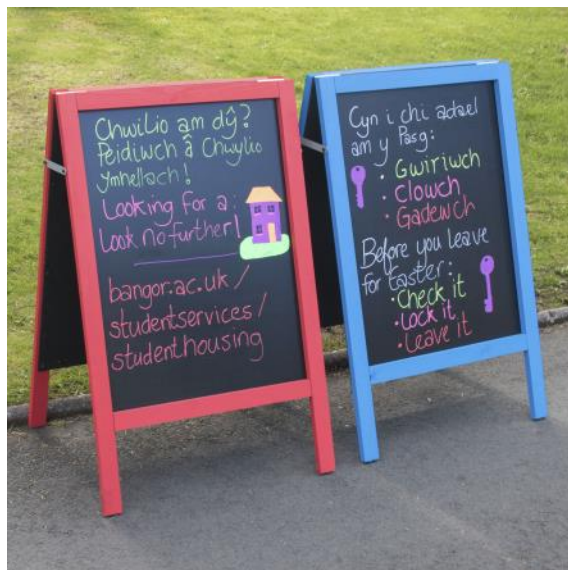 Chwilio am dŷ?
Peidiwch â Chwylio
Ymhellach!
Looking for a:
Look no further!
bangor.ac.uk/
studentservices/
studenthousing
Cyn i chi adael
am y Pasg:
· Gwiriwch
· Clowch
· Gadewch
Before you leave
for Easter:
·Check it
·Lock it
·Leave it